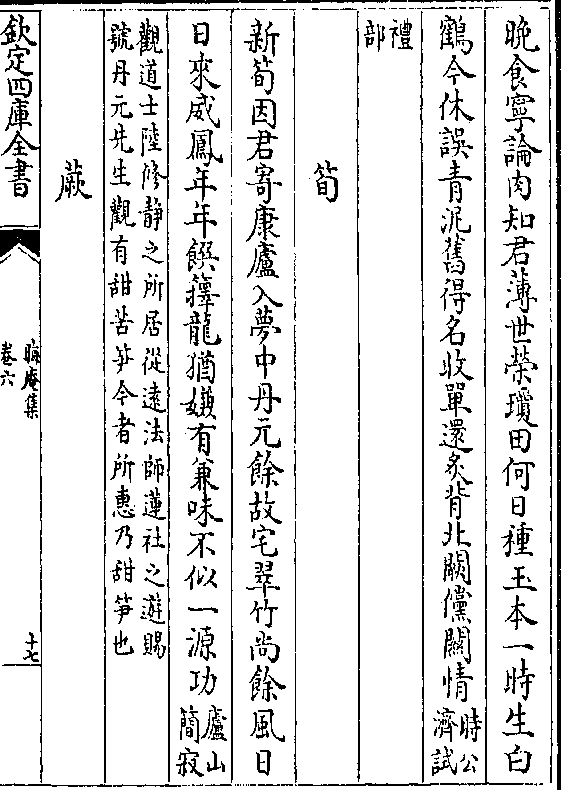 晚食寧論肉知君薄世榮瓊田何日種玉本一時生白
鶴今休誤青泥舊得名收單還炙背北闕儻關情時公
濟試
禮
部
筍
新筍因君寄康廬入夢中丹元餘故宅翠竹尚餘風日
日來威鳳年年饌籜龍猶嫌有兼味不似一源功廬山
簡寂
觀道士陸修静之所居從遠法師蓮社之遊賜
號丹元先生觀有甜苦笋今者所惠乃甜笋也
蕨
欽定四庫全書
晦庵集
卷六
十七